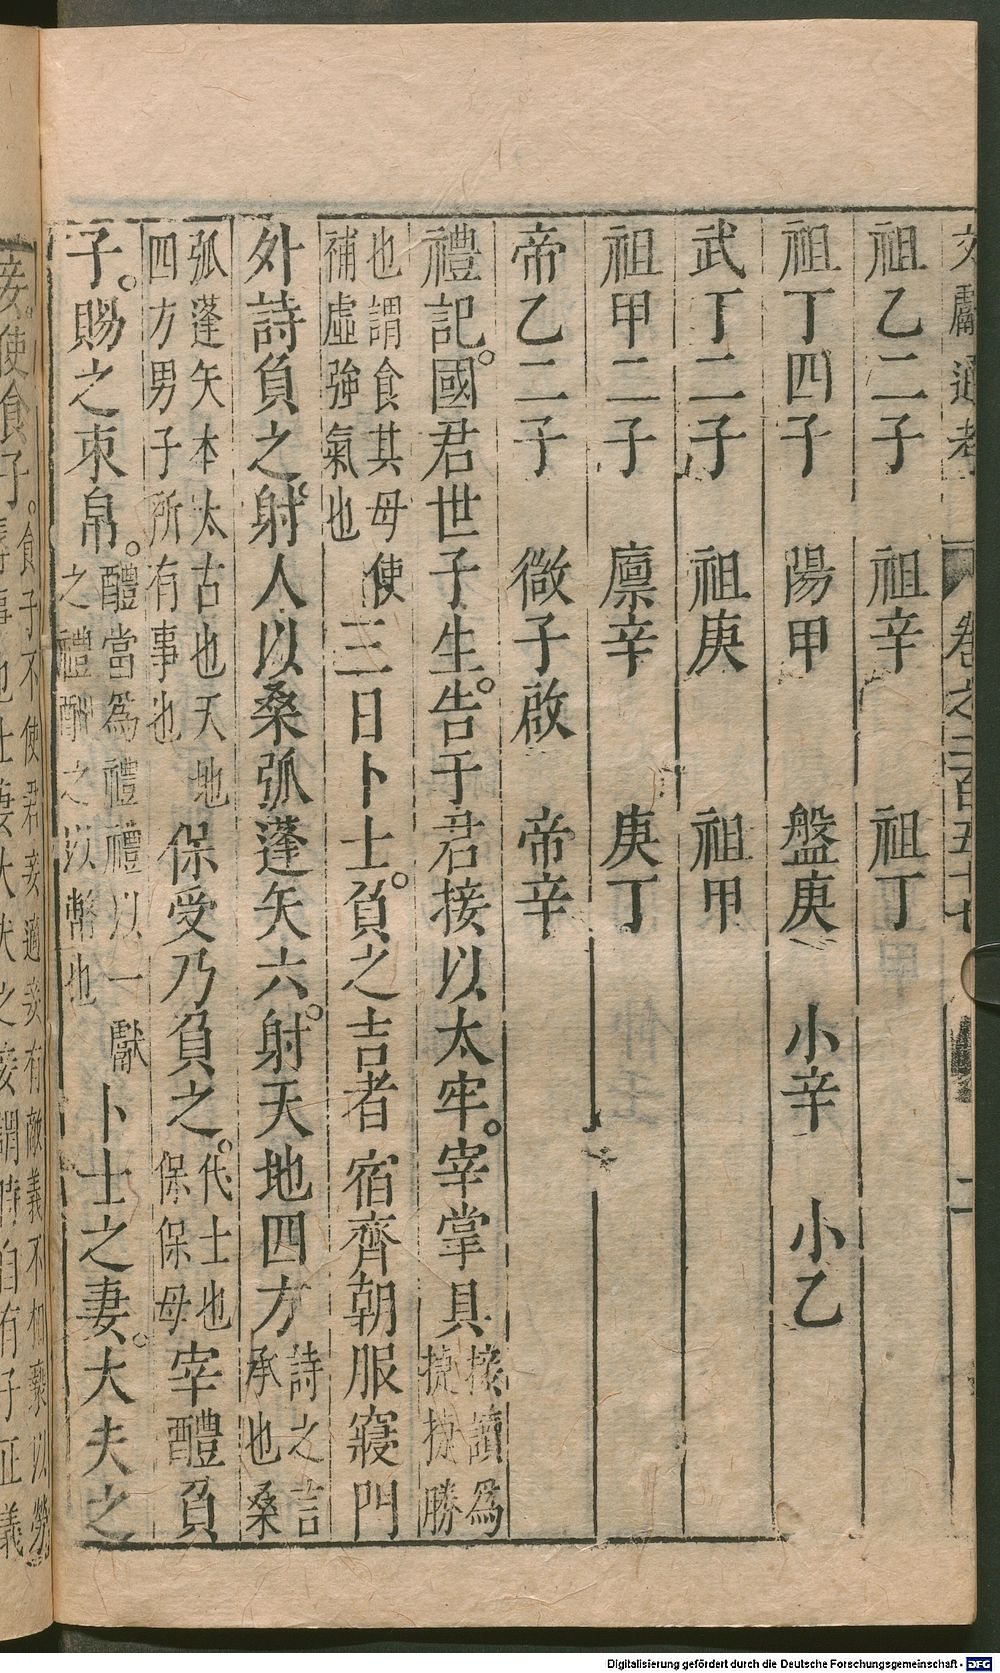 文獻通考 卷之二百五十七 二
祖乙二子 祖辛 祖丁
祖丁四子 陽甲 盤庚 小辛 小乙
武丁二子 祖庚 祖甲
祖甲二子 廪辛 庚丁
帝乙二子 微子啟 帝辛
禮記。國君世子生。告于君接以太牢。宰掌具接讀為捷捷勝
也謂食其母使補虛強氣也三日卜士。負之吉者宿齊朝服寢門
外詩負之。射人以桑弧蓬矢六。射天地四方詩之言承也桑
弧蓬矢本太古也天地四方男子所有事也保受乃負之。代士也保保母宰醴負
子。賜之束帛。醴當為禮禮以一獻之禮酬之以幣也卜士之妻。大夫之
妾使食子。食子不使君妾適妾有敵義不相褻以勞
Digitalisierung gefördert durch die Deutsche Forschungsgemeinschaft - DFG